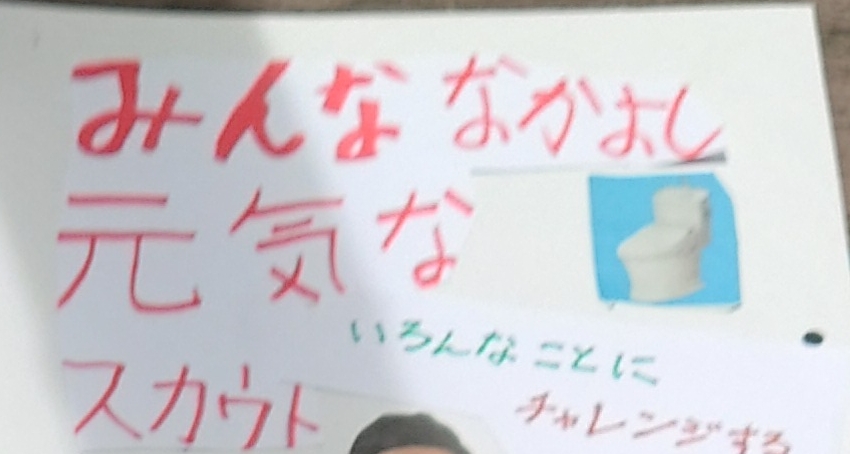 みんななかよし
元気な
いろんなことに
チャレンジする
スカウト